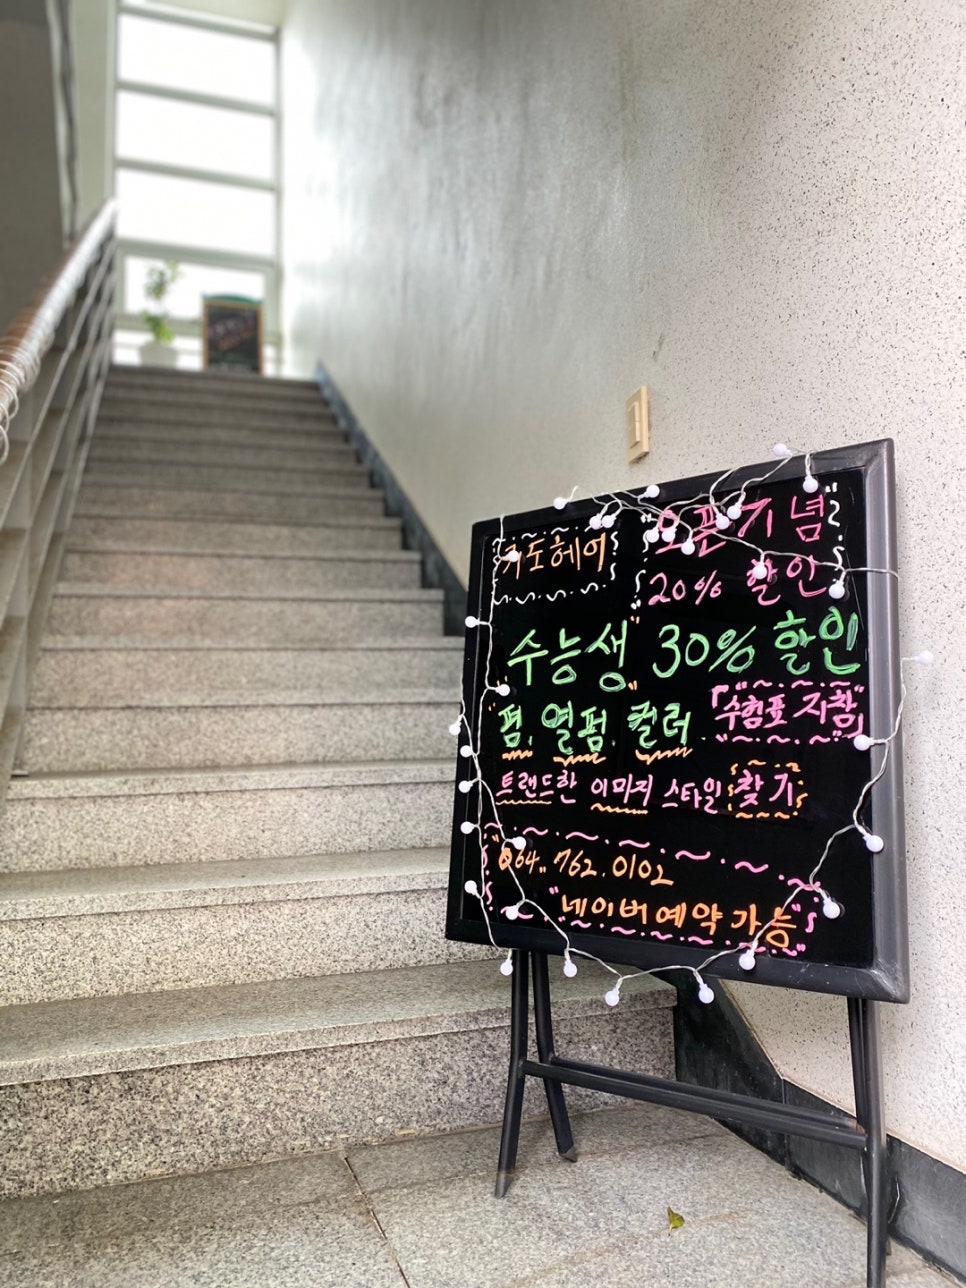 지도헤어
오픈기념
20% 할인
"수능생" 30% 할인
"펌. 열펌. 컬러. 「"수험표 지참"」
트랜드한 이미지 스타일 찾기
"064. 762. 0102
"네이버예약가능"